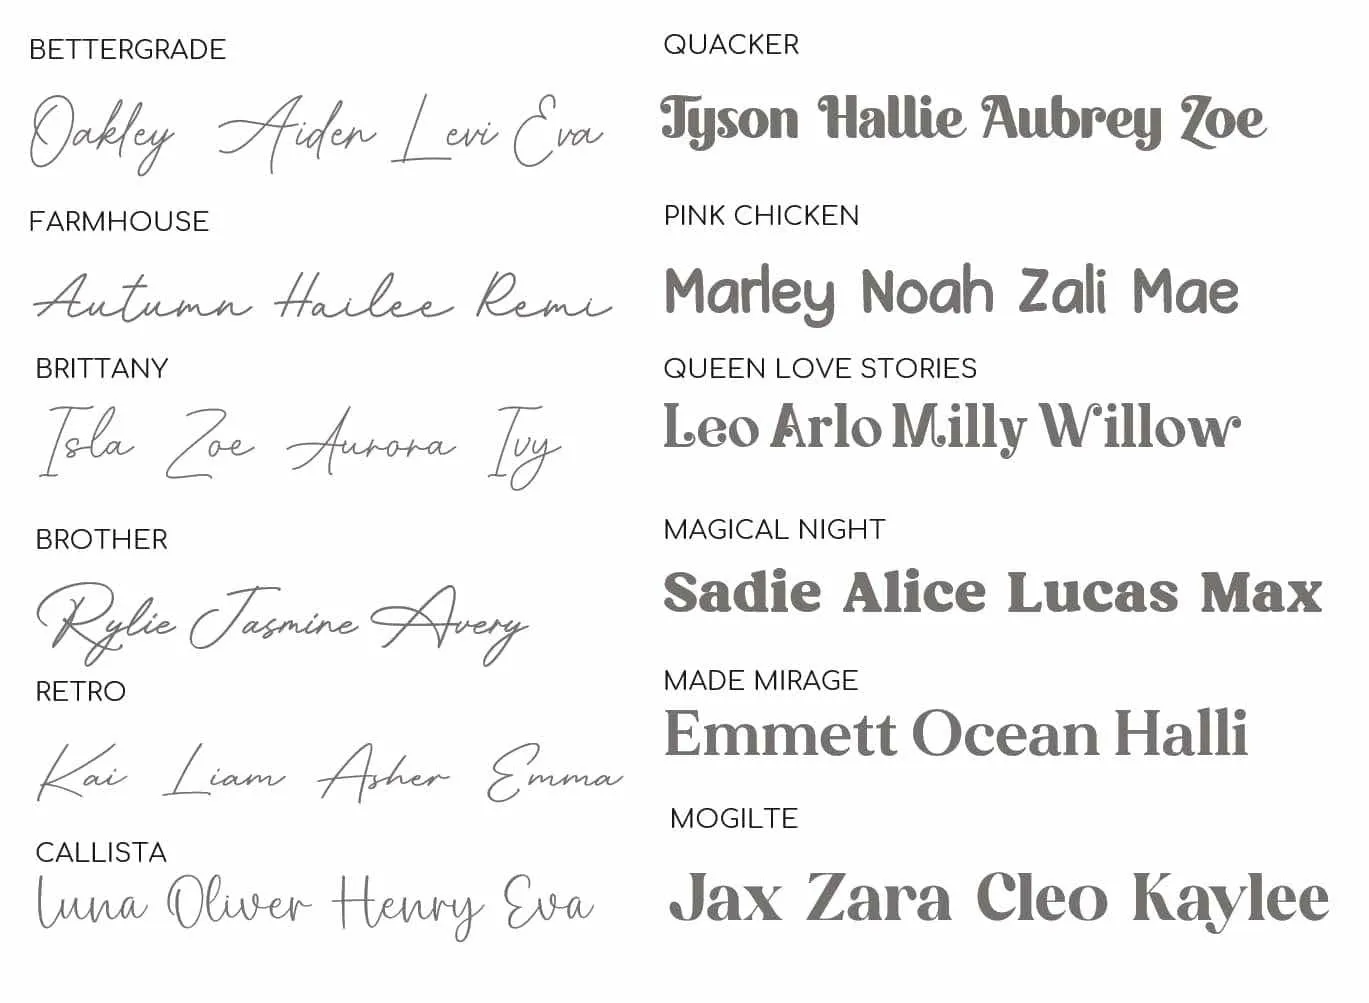 BETTERGRADE
Oakley Aiden Levi Eva
FARMHOUSE
Autumn Hailee Remi
BRITTANY
Isla Zoe Aurora Ivy
BROTHER
Rylie Jasmine Avery
RETRO
Kai Liam Asher Emma
CALLISTA
Luna Oliver Henry Eva
QUACKER
Tyson Hallie Aubrey Zoe
PINK CHICKEN
Marley Noah Zali Mae
QUEEN LOVE STORIES
Leo Arlo Milly Willow
MAGICAL NIGHT
Sadie Alice Lucas Max
MADE MIRAGE
Emmett Ocean Halli
MOGILTE
Jax Zara Cleo Kaylee